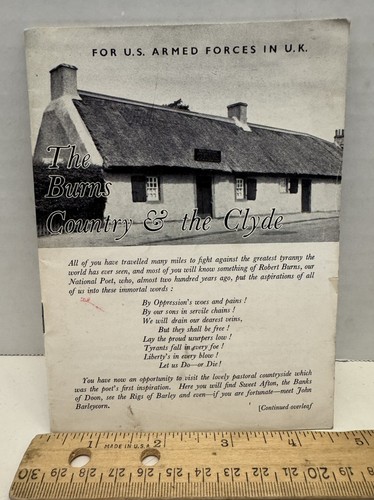 FOR U.S. ARMED FORCES IN U.K.
The
Burns
Country & the Clyde
All of you have travelled many miles to fight against the greatest tyranny the
world has ever seen, and most of you will know something of Robert Burns, our
National Poet, who, almost two hundred years ago, put the aspirations of all
of us into these immortal words :
By Oppression's woes and pains !
By our sons in servile chains !
We will drain our dearest veins,
But they shall be free !
Lay the proud usurpers low !
Tyrants fall in every foe !
Liberty's in every blow !
Let us Do—or Die!
You have now an opportunity to visit the lovely pastoral countryside which
was the poet's first inspiration. Here you will find Sweet Afton, the Banks
of Doon, see the Rigs of Barley and even—if you are fortunate—meet John
Barleycorn.
[Continued overleaf
MADE IN U.S.A.